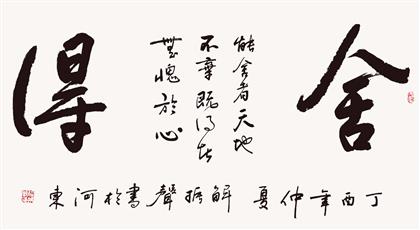 舍
能舍者天地
不棄既得者
無愧於心
得
丁酉年仲夏觧振聲書於河東